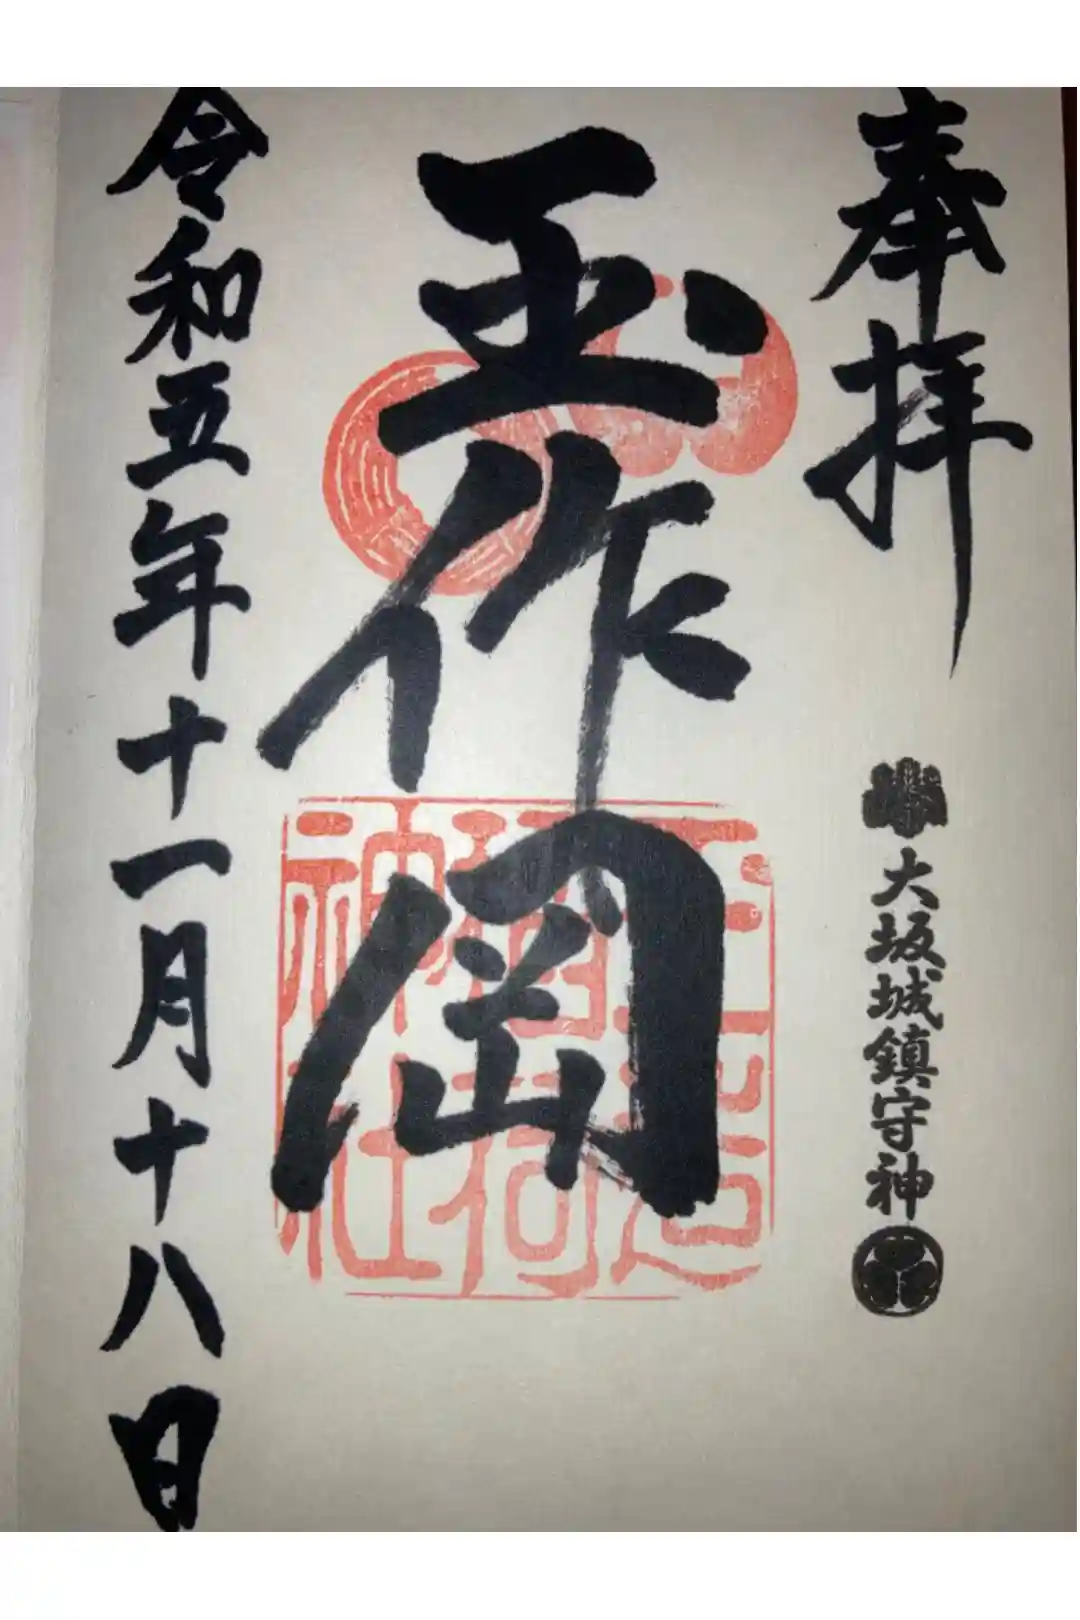 奉拝
大坂城鎮守神
玉作岡
玉造稲荷神社
令和五年十一月十八日